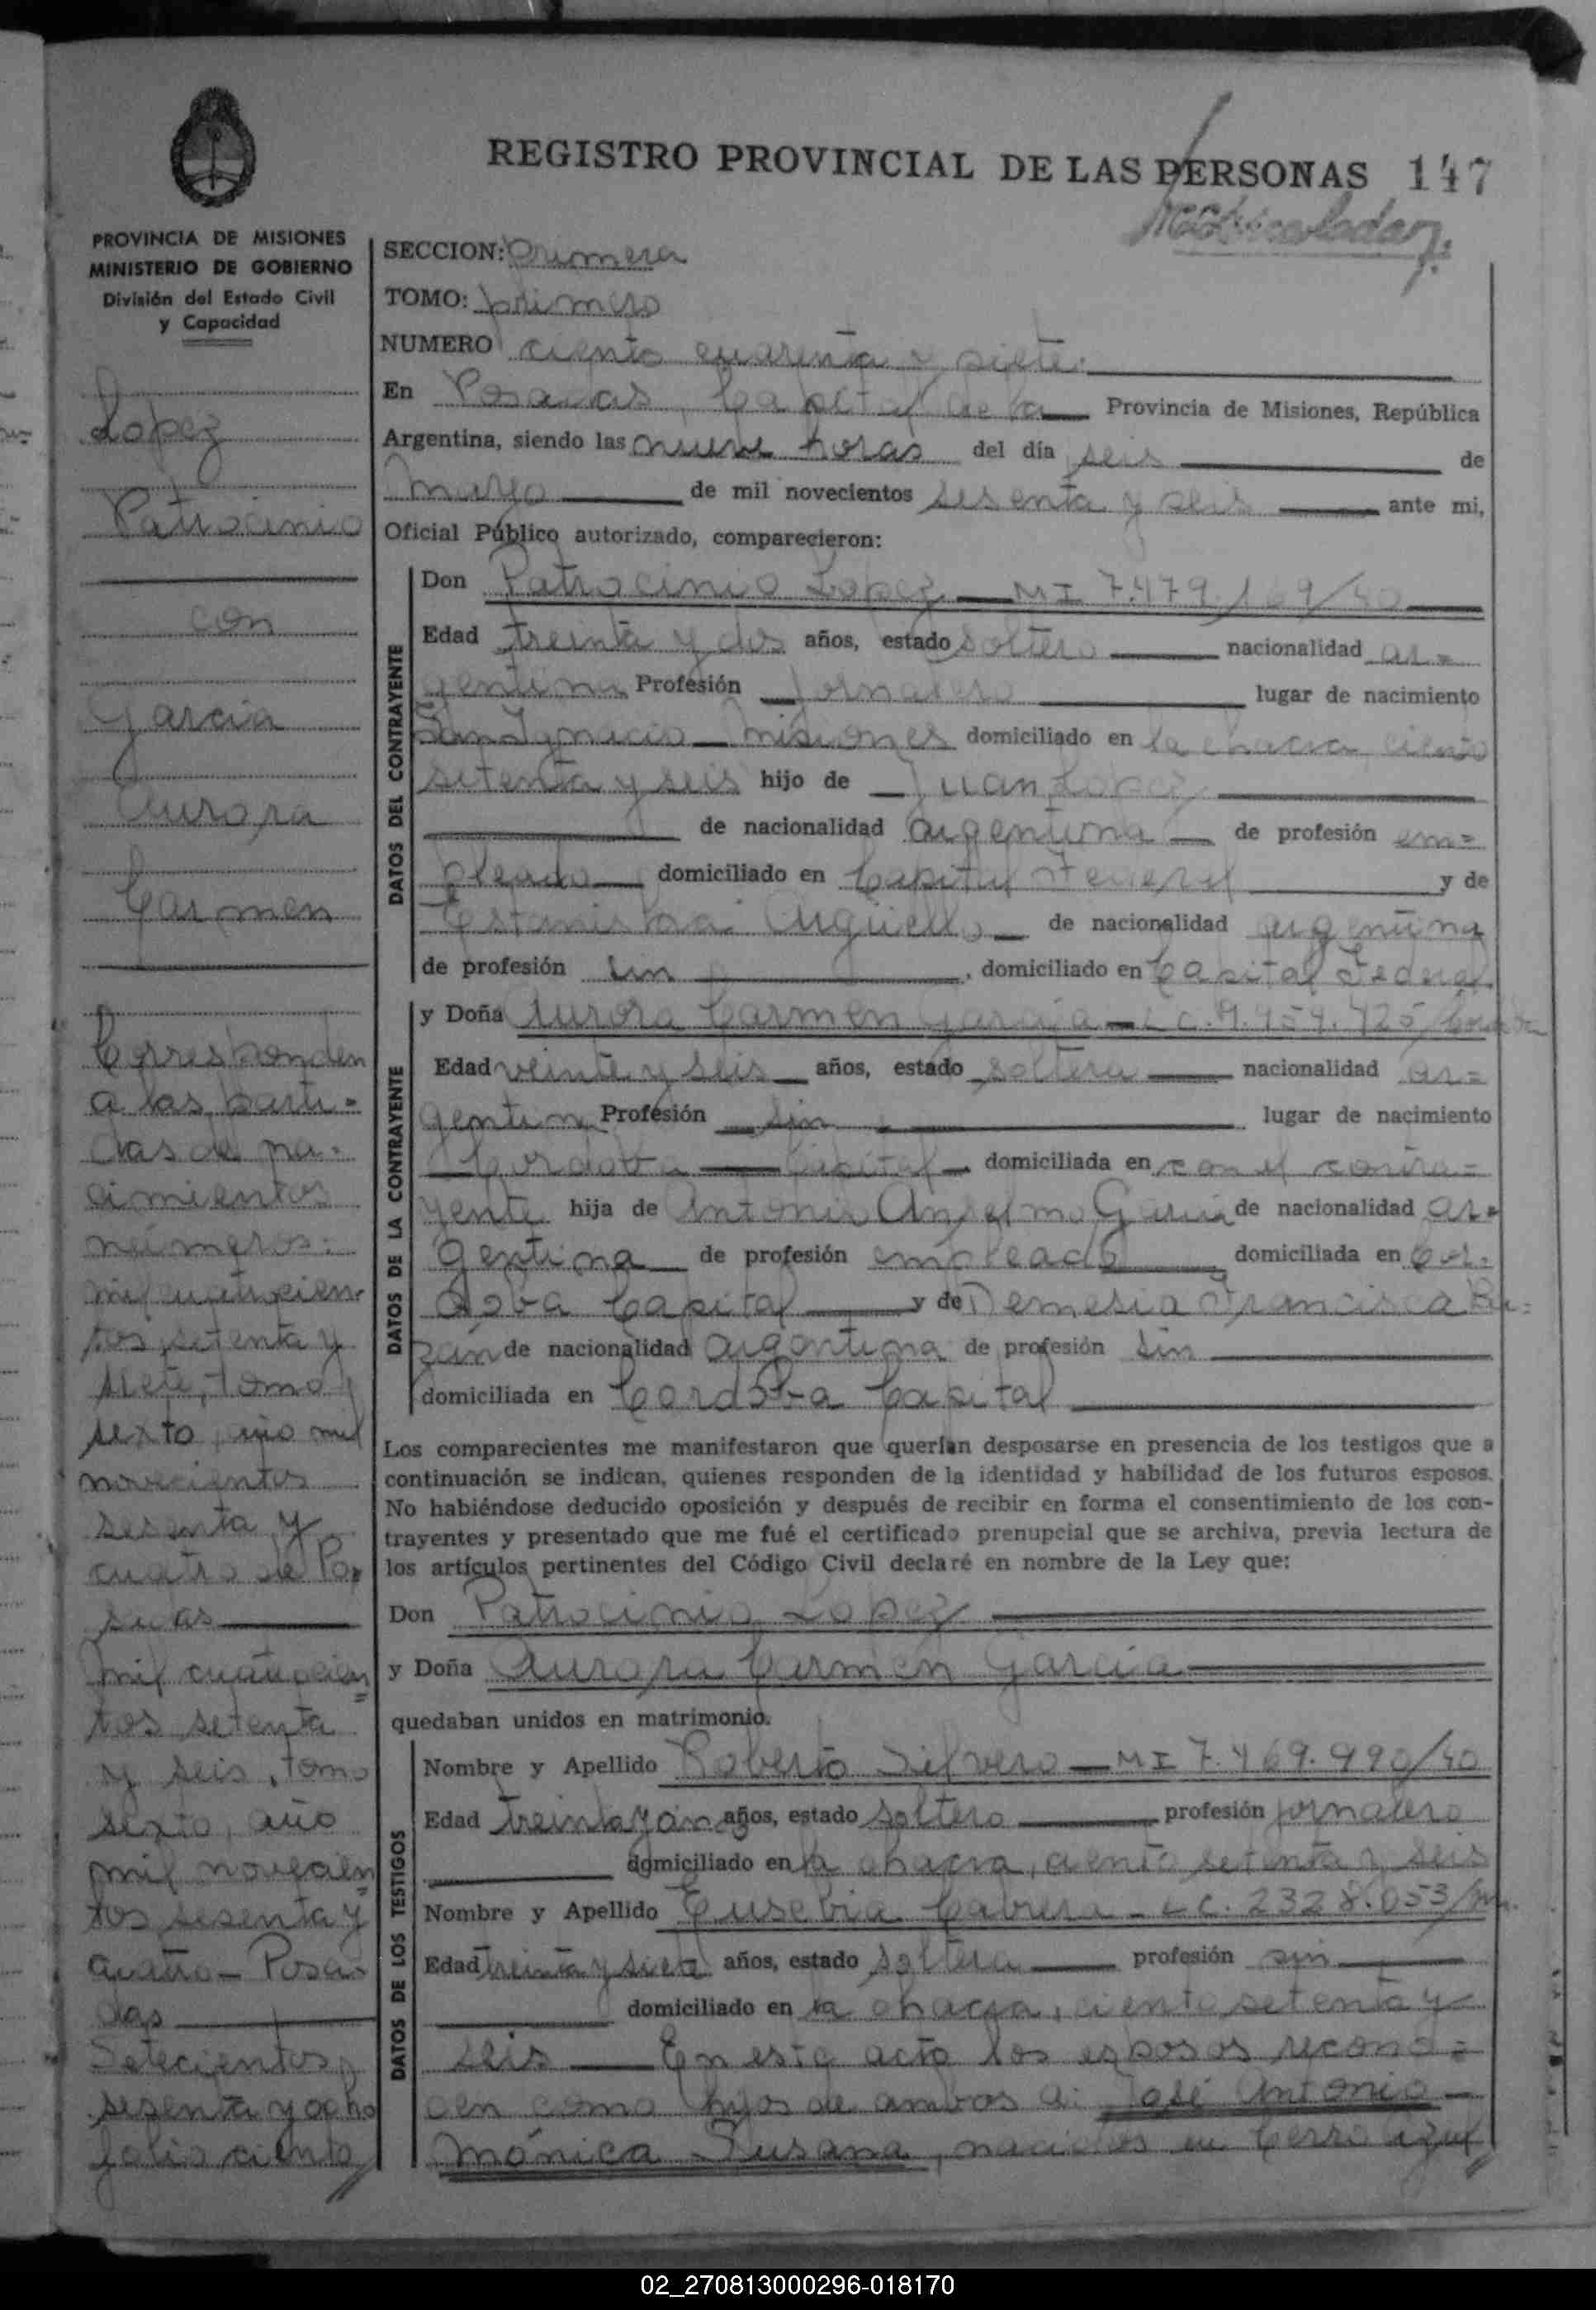 REGISTRO PROVINCIAL DE LAS PERSONAS 147
PROVINCIA DE MISIONES
MINISTERIO DE GOBIERNO
División del Estado Civil
y Capacidad
Lopez
Patrocinio
con
Garcia
Aurora
Carmen
Corresponden
a las parti-
das de na-
cimientos
números:
mil cuatrocien-
tos setenta y
siete, tomo
sexto, año mil
novecientos
sesenta y
cuatro de Po-
sadas
mil cuatrocien=
tos setenta
y seis, tomo
sexto, año
mil novecien=
tos sesenta y
cuatro - Posa-
das
Setecientos
sesenta y ocho
folio ciento
SECCION: Primera
TOMO: primero
NUMERO ciento cuarenta y siete.
En Posadas, Capital de la Provincia de Misiones, República
Argentina, siendo las nueve horas del día seis de
mayo de mil novecientos sesenta y seis ante mi,
Oficial Público autorizado, comparecieron:
DATOS DEL CONTRAYENTE
Don Patrocinio Lopez — MI 7.479.169/40
Edad treinta y dos años, estado soltero nacionalidad ar=
gentina Profesión jornalero lugar de nacimiento
San Ignacio - Misiones domiciliado en la chacra ciento
setenta y seis hijo de Juan Lopez
de nacionalidad argentina de profesión em=
pleado domiciliado en Capital Federal y de
Estanislaa Argüello de nacionalidad argentina
de profesión sin, domiciliado en Capital Federal
DATOS DE LA CONTRAYENTE
y Doña Aurora Carmen Garcia - LC. 9.959.725/
Edad veinte y seis años, estado soltera nacionalidad ar=
gentina Profesión sin lugar de nacimiento
Cordoba — Capital domiciliada en con el contra=
yente hija de Antonio Anselmo Garcia de nacionalidad ar=
gentina de profesión empleado domiciliada en Cor-
doba Capital y de Nemesia Francisca Ba=
zán de nacionalidad argentina de profesión sin
domiciliada en Cordoba Capital
Los comparecientes me manifestaron que querían desposarse en presencia de los testigos que a
continuación se indican, quienes responden de la identidad y habilidad de los futuros esposos.
No habiéndose deducido oposición y después de recibir en forma el consentimiento de los con-
trayentes y presentado que me fué el certificado prenupcial que se archiva, previa lectura de
los artículos pertinentes del Código Civil declaré en nombre de la Ley que:
Don Patrocinio Lopez
y Doña Aurora Carmen Garcia
quedaban unidos en matrimonio.
DATOS DE LOS TESTIGOS
Nombre y Apellido Roberto Silvero — MI 7.469.990/40
Edad treinta y años, estado soltero profesión jornalero
domiciliado en la chacra, ciento setenta y seis
Nombre y Apellido Eusebia Cabrera - LC. 2328.053/
Edad treinta y siete años, estado soltera profesión sin
domiciliado en la chacra, ciento setenta y
seis — En este acto los esposos recono=
cen como hijos de ambos a: José Antonio -
Mónica Susana, nacidos en Cerro Azul
02_270813000296-018170